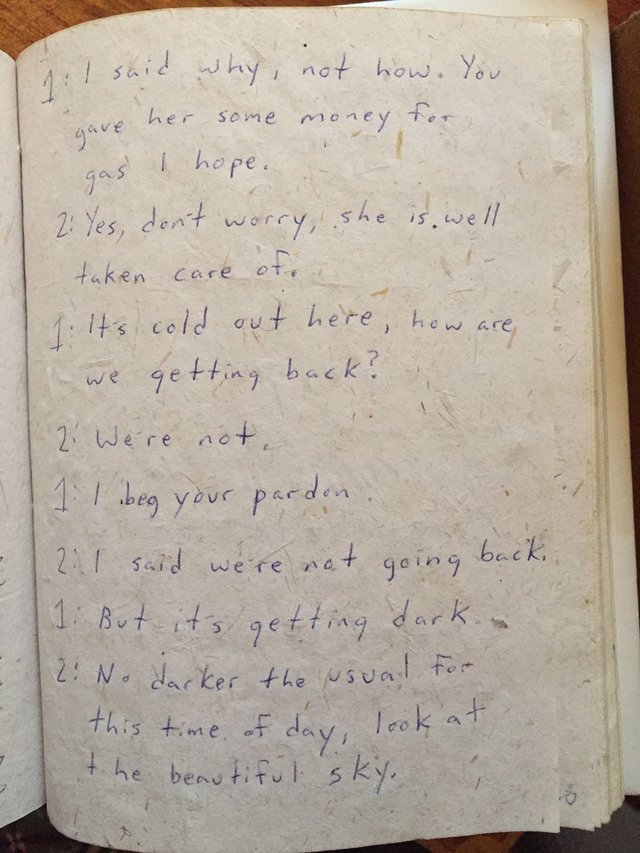 1: I said why, not how. You
gave her some money for
gas I hope.
2: Yes, don't worry, she is well
taken care of.
1: It's cold out here, how are
we getting back?
2: We're not.
1: I beg your pardon.
2: I said we're not going back.
1: But it's getting dark.
2: No darker the usual for
this time of day, look at
the beautiful sky.